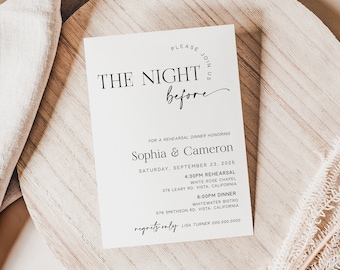 PLEASE JOIN US
THE NIGHT
before
FOR A REHEARSAL DINNER HONORING
Sophia & Cameron
SATURDAY, SEPTEMBER 23, 2025
4:30PM REHEARSAL
WHITE ROSE CHAPEL
376 LEARY RD. VISTA, CALIFORNIA
6:00PM DINNER
WHITEWATER BISTRO
576 SMITHSON RD. VISTA, CALIFORNIA
regrets only LISA TURNER 000.000.0000